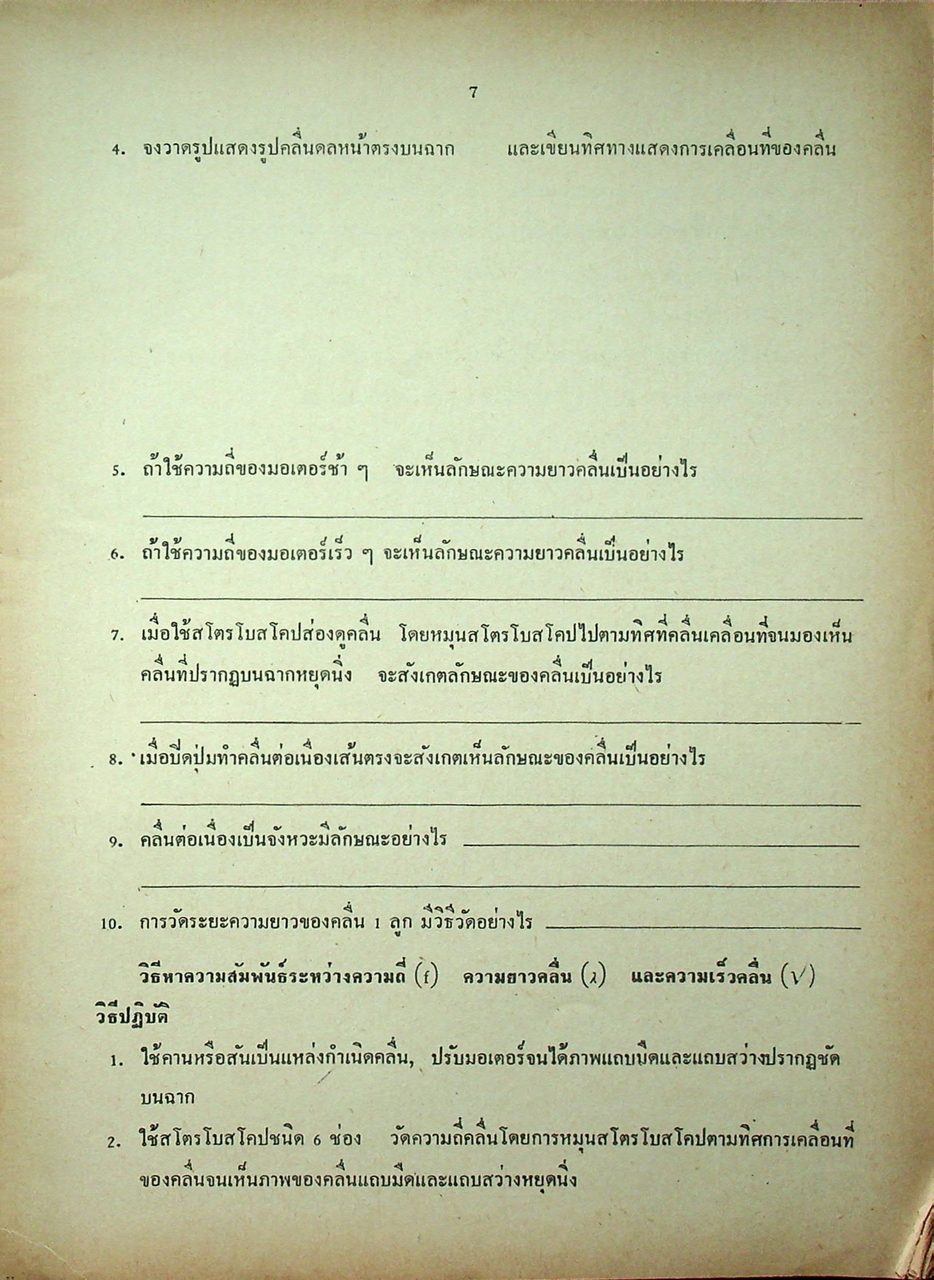 7
4. จงวาดรูปแสดงรูปคลื่นดลหน้าตรงบนฉาก และเขียนทิศทางแสดงการเคลื่อนที่ของคลื่น
5. ถ้าใช้ความถี่ของมอเตอร์ช้า ๆ จะเห็นลักษณะความยาวคลื่นเป็นอย่างไร
6. ถ้าใช้ความถี่ของมอเตอร์เร็ว ๆ จะเห็นลักษณะความยาวคลื่นเป็นอย่างไร
7. เมื่อใช้สโตรโบสโคปส่องดูคลื่น โดยหมุนสโตรโบสโคปไปตามทิศที่คลื่นเคลื่อนที่จนมองเห็น
คลื่นที่ปรากฏบนฉากหยุดนิ่ง จะสังเกตลักษณะของคลื่นเป็นอย่างไร
8. เมื่อปิดปุ่มทำคลื่นต่อเนื่องเส้นตรงจะสังเกตเห็นลักษณะของคลื่นเป็นอย่างไร
9. คลื่นต่อเนื่องเป็นจังหวะมีลักษณะอย่างไร
10. การวัดระยะความยาวของคลื่น 1 ลูก มีวิธีวัดอย่างไร
วิธีหาความสัมพันธ์ระหว่างความถี่ (f) ความยาวคลื่น (λ) และความเร็วคลื่น (V)
วิธีปฏิบัติ
1. ใช้คานหรือสันเป็นแหล่งกำเนิดคลื่น, ปรับมอเตอร์จนได้ภาพแถบมืดและแถบสว่างปรากฏชัด
บนฉาก
2. ใช้สโตรโบสโคปชนิด 6 ช่อง วัดความถี่คลื่นโดยการหมุนสโตรโบสโคปตามทิศการเคลื่อนที่
ของคลื่นจนเห็นภาพของคลื่นแถบมืดและแถบสว่างหยุดนิ่ง